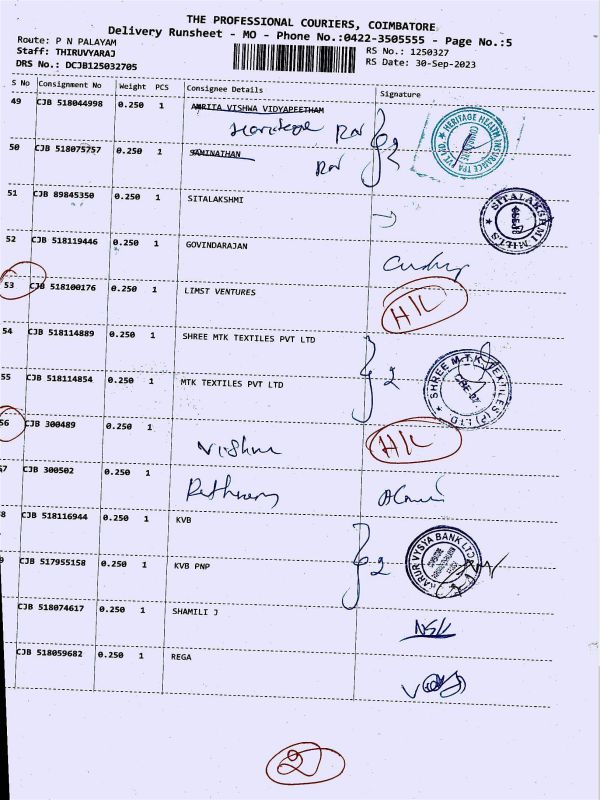 THE PROFESSIONAL COURIERS, COIMBATORE
Delivery Runsheet - MO - Phone No.:0422-3505555 - Page No.:5
Route: P N PALAYAM
Staff: THIRUVYARAJ
RS No.: 1250327
DRS No.: DCJB125032705
RS Date: 30-Sep-2023
S No Consignment No Weight PCS Consignee Details Signature
49 CJB 518044998 0.250 1 AMRITA VISHWA VIDYAPEETHAM
Heritage
2
HERITAGE HEALTH INSURANCE TPA PVT. LTD. COIMBATORE
50 CJB 518075757 0.250 1 SAMINATHAN
51 CJB 89845350 0.250 1 SITALAKSHMI
SITALAKSHMI MILLS
52 CJB 518119446 0.250 1 GOVINDARAJAN
53 CJB 518100176 0.250 1 LIMST VENTURES
H/L
54 CJB 518114889 0.250 1 SHREE MTK TEXTILES PVT LTD
2
SHREE M.T.K. TEXTILES (P) LTD
55 CJB 518114854 0.250 1 MTK TEXTILES PVT LTD
56 CJB 300489 0.250 1
Vishnu
H/L
57 CJB 300502 0.250 1
8 CJB 518116944 0.250 1 KVB
2
KARUR VYSYA BANK LTD
9 CJB 517955158 0.250 1 KVB PNP
CJB 518074617 0.250 1 SHAMILI J
CJB 518059682 0.250 1 REGA
2